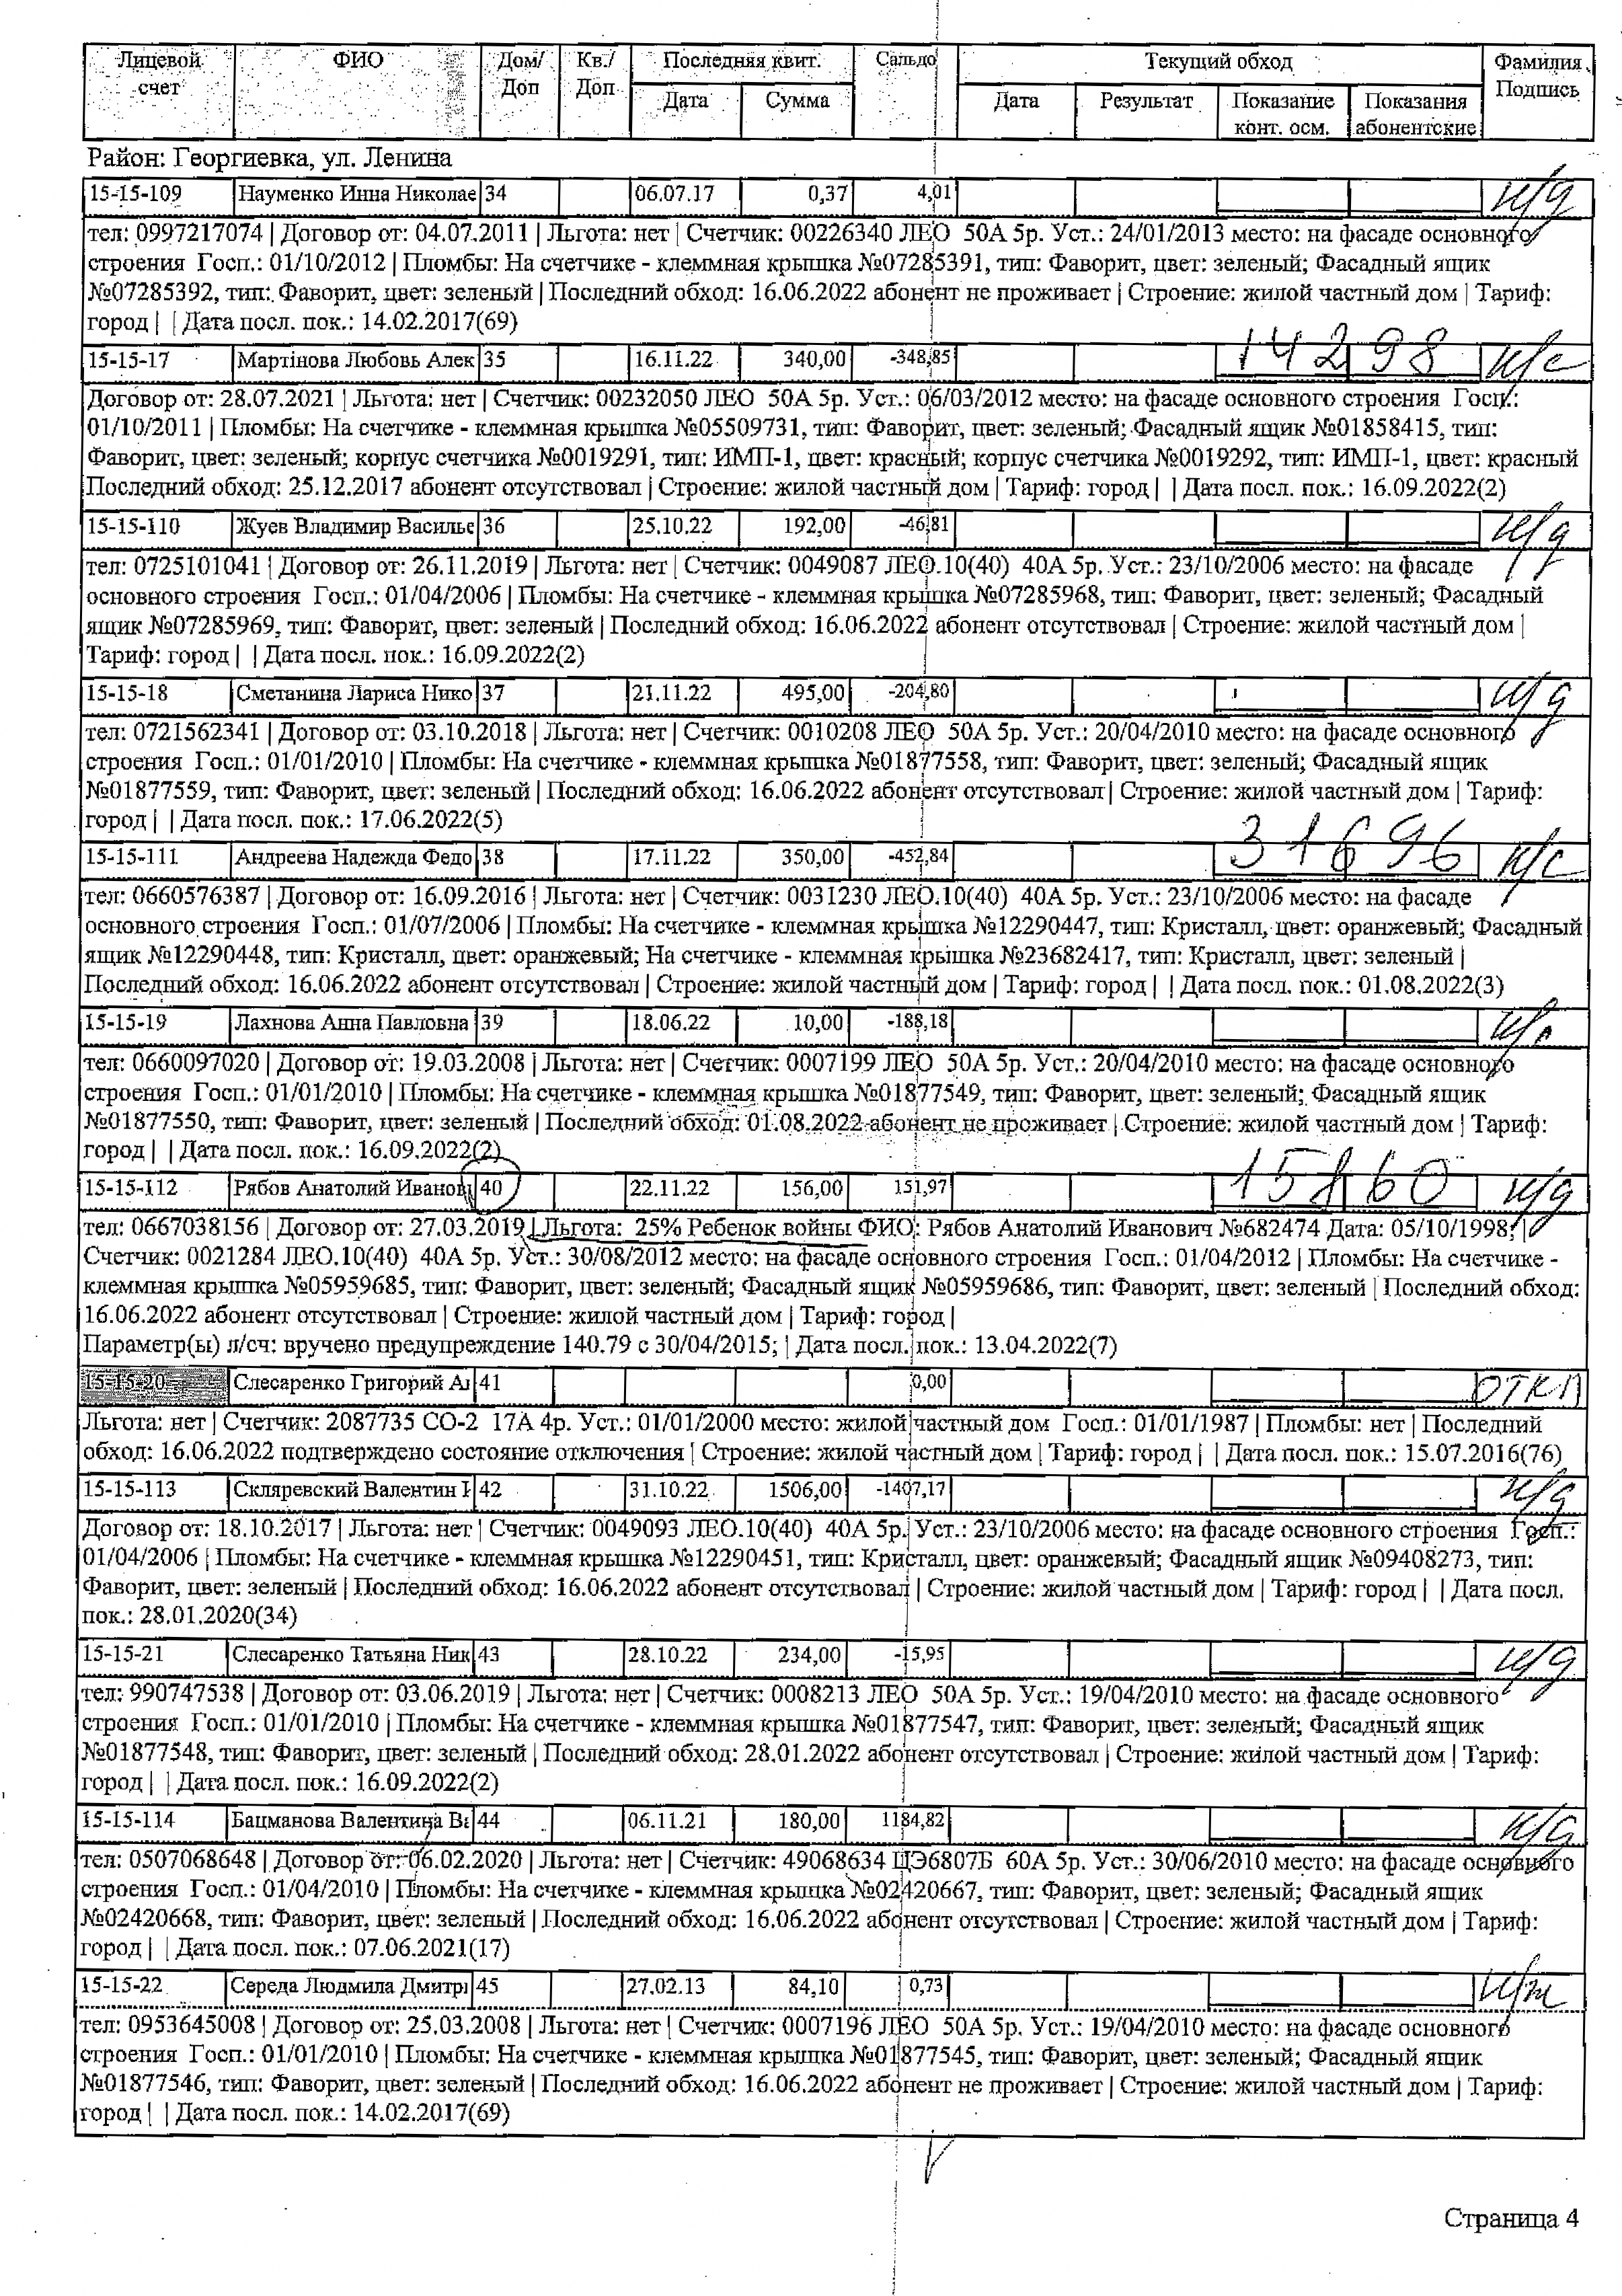 Лицевой счет ФИО Дом/Доп Кв./Доп Последняя квит. Сальдо Текущий обход Фамилия Подпись
Дата Сумма Дата Результат Показание конт. осм. Показания абонентские
Район: Георгиевка, ул. Ленина
15-15-109 Науменко Инна Николае 34 06.07.17 0,37 4,01 н/д
тел: 0997217074 | Договор от: 04.07.2011 | Льгота: нет | Счетчик: 00226340 ЛЕО 50А 5р. Уст.: 24/01/2013 место: на фасаде основного
строения Госп.: 01/10/2012 | Пломбы: На счетчике - клеммная крышка №07285391, тип: Фаворит, цвет: зеленый; Фасадный ящик
№07285392, тип: Фаворит, цвет: зеленый | Последний обход: 16.06.2022 абонент не проживает | Строение: жилой частный дом | Тариф:
город | | Дата посл. пок.: 14.02.2017(69)
15-15-17 Мартінова Любовь Алек 35 16.11.22 340,00 -348,85 14298 н/с
Договор от: 28.07.2021 | Льгота: нет | Счетчик: 00232050 ЛЕО 50А 5р. Уст.: 06/03/2012 место: на фасаде основного строения Госп.:
01/10/2011 | Пломбы: На счетчике - клеммная крышка №05509731, тип: Фаворит, цвет: зеленый; Фасадный ящик №01858415, тип:
Фаворит, цвет: зеленый; корпус счетчика №0019291, тип: ИМП-1, цвет: красный; корпус счетчика №0019292, тип: ИМП-1, цвет: красный
Последний обход: 25.12.2017 абонент отсутствовал | Строение: жилой частный дом | Тариф: город | | Дата посл. пок.: 16.09.2022(2)
15-15-110 Жуев Владимир Василье 36 25.10.22 192,00 -46,81 н/д
тел: 0725101041 | Договор от: 26.11.2019 | Льгота: нет | Счетчик: 0049087 ЛЕО.10(40) 40А 5р. Уст.: 23/10/2006 место: на фасаде
основного строения Госп.: 01/04/2006 | Пломбы: На счетчике - клеммная крышка №07285968, тип: Фаворит, цвет: зеленый; Фасадный
ящик №07285969, тип: Фаворит, цвет: зеленый | Последний обход: 16.06.2022 абонент отсутствовал | Строение: жилой частный дом |
Тариф: город | | Дата посл. пок.: 16.09.2022(2)
15-15-18 Сметанина Лариса Нико 37 21.11.22 495,00 -204,80 н/д
тел: 0721562341 | Договор от: 03.10.2018 | Льгота: нет | Счетчик: 0010208 ЛЕО 50А 5р. Уст.: 20/04/2010 место: на фасаде основного
строения Госп.: 01/01/2010 | Пломбы: На счетчике - клеммная крышка №01877558, тип: Фаворит, цвет: зеленый; Фасадный ящик
№01877559, тип: Фаворит, цвет: зеленый | Последний обход: 16.06.2022 абонент отсутствовал | Строение: жилой частный дом | Тариф:
город | | Дата посл. пок.: 17.06.2022(5)
15-15-111 Андреева Надежда Федо 38 17.11.22 350,00 -452,84 31696 н/с
тел: 0660576387 | Договор от: 16.09.2016 | Льгота: нет | Счетчик: 0031230 ЛЕО.10(40) 40А 5р. Уст.: 23/10/2006 место: на фасаде
основного строения Госп.: 01/07/2006 | Пломбы: На счетчике - клеммная крышка №12290447, тип: Кристалл, цвет: оранжевый; Фасадный
ящик №12290448, тип: Кристалл, цвет: оранжевый; На счетчике - клеммная крышка №23682417, тип: Кристалл, цвет: зеленый |
Последний обход: 16.06.2022 абонент отсутствовал | Строение: жилой частный дом | Тариф: город | | Дата посл. пок.: 01.08.2022(3)
15-15-19 Лахнова Анна Павловна 39 18.06.22 10,00 -188,18
тел: 0660097020 | Договор от: 19.03.2008 | Льгота: нет | Счетчик: 0007199 ЛЕО 50А 5р. Уст.: 20/04/2010 место: на фасаде основного
строения Госп.: 01/01/2010 | Пломбы: На счетчике - клеммная крышка №01877549, тип: Фаворит, цвет: зеленый; Фасадный ящик
№01877550, тип: Фаворит, цвет: зеленый | Последний обход: 01.08.2022 абонент не проживает | Строение: жилой частный дом | Тариф:
город | | Дата посл. пок.: 16.09.2022(2)
15-15-112 Рябов Анатолий Иванов 40 22.11.22 156,00 151,97 15160 н/д
тел: 0667038156 | Договор от: 27.03.2019 | Льгота: 25% Ребенок войны ФИО: Рябов Анатолий Иванович №682474 Дата: 05/10/1998; |
Счетчик: 0021284 ЛЕО.10(40) 40А 5р. Уст.: 30/08/2012 место: на фасаде основного строения Госп.: 01/04/2012 | Пломбы: На счетчике -
клеммная крышка №05959685, тип: Фаворит, цвет: зеленый; Фасадный ящик №05959686, тип: Фаворит, цвет: зеленый | Последний обход:
16.06.2022 абонент отсутствовал | Строение: жилой частный дом | Тариф: город |
Параметр(ы) л/сч: вручено предупреждение 140.79 с 30/04/2015; | Дата посл. пок.: 13.04.2022(7)
15-15-20 Слесаренко Григорий Ал 41 0,00 откл
Льгота: нет | Счетчик: 2087735 СО-2 17А 4р. Уст.: 01/01/2000 место: жилой частный дом Госп.: 01/01/1987 | Пломбы: нет | Последний
обход: 16.06.2022 подтверждено состояние отключения | Строение: жилой частный дом | Тариф: город | | Дата посл. пок.: 15.07.2016(76)
15-15-113 Скляревский Валентин 42 31.10.22 1506,00 -1407,17 н/д
Договор от: 18.10.2017 | Льгота: нет | Счетчик: 0049093 ЛЕО.10(40) 40А 5р. Уст.: 23/10/2006 место: на фасаде основного строения Госп.:
01/04/2006 | Пломбы: На счетчике - клеммная крышка №12290451, тип: Кристалл, цвет: оранжевый; Фасадный ящик №09408273, тип:
Фаворит, цвет: зеленый | Последний обход: 16.06.2022 абонент отсутствовал | Строение: жилой частный дом | Тариф: город | | Дата посл.
пок.: 28.01.2020(34)
15-15-21 Слесаренко Татьяна Ник 43 28.10.22 234,00 -15,95 н/д
тел: 990747538 | Договор от: 03.06.2019 | Льгота: нет | Счетчик: 0008213 ЛЕО 50А 5р. Уст.: 19/04/2010 место: на фасаде основного
строения Госп.: 01/01/2010 | Пломбы: На счетчике - клеммная крышка №01877547, тип: Фаворит, цвет: зеленый; Фасадный ящик
№01877548, тип: Фаворит, цвет: зеленый | Последний обход: 28.01.2022 абонент отсутствовал | Строение: жилой частный дом | Тариф:
город | | Дата посл. пок.: 16.09.2022(2)
15-15-114 Бацманова Валентина Ва 44 06.11.21 180,00 1184,82 н/д
тел: 0507068648 | Договор от: 06.02.2020 | Льгота: нет | Счетчик: 49068634 ЦЭ6807Б 60А 5р. Уст.: 30/06/2010 место: на фасаде основного
строения Госп.: 01/04/2010 | Пломбы: На счетчике - клеммная крышка №02420667, тип: Фаворит, цвет: зеленый; Фасадный ящик
№02420668, тип: Фаворит, цвет: зеленый | Последний обход: 16.06.2022 абонент отсутствовал | Строение: жилой частный дом | Тариф:
город | | Дата посл. пок.: 07.06.2021(17)
15-15-22 Середа Людмила Дмитри 45 27.02.13 84,10 0,73 н/ж
тел: 0953645008 | Договор от: 25.03.2008 | Льгота: нет | Счетчик: 0007196 ЛЕО 50А 5р. Уст.: 19/04/2010 место: на фасаде основного
строения Госп.: 01/01/2010 | Пломбы: На счетчике - клеммная крышка №01877545, тип: Фаворит, цвет: зеленый; Фасадный ящик
№01877546, тип: Фаворит, цвет: зеленый | Последний обход: 16.06.2022 абонент не проживает | Строение: жилой частный дом | Тариф:
город | | Дата посл. пок.: 14.02.2017(69)
Страница 4